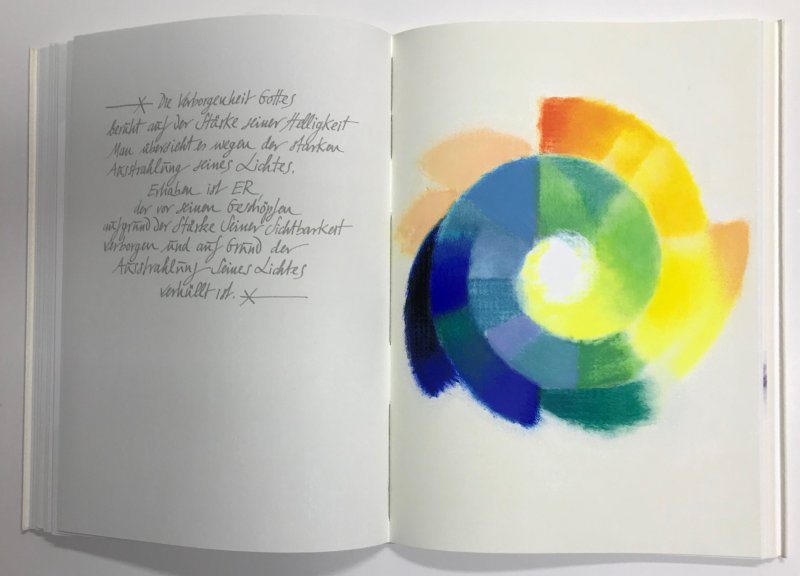 Die Verborgenheit Gottes
beruht auf der Stärke seiner Helligkeit
Man übersieht es wegen der starken
Ausstrahlung seines Lichtes.
Erhaben ist ER,
der vor seinen Geschöpfen
aufgrund der Stärke seiner Sichtbarkeit
verborgen und auf Grund der
Ausstrahlung seines Lichtes
verhüllt ist.